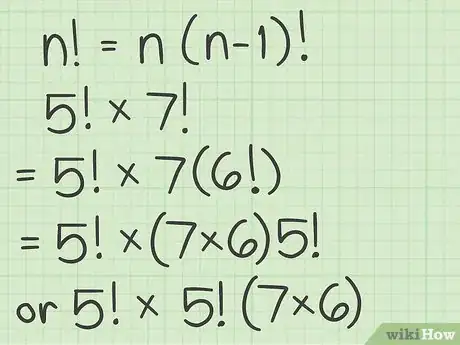 n! = n (n-1)!
5! × 7!
= 5! × 7(6!)
= 5! ×(7×6)5!
or 5! × 5! (7×6)
wikiHow